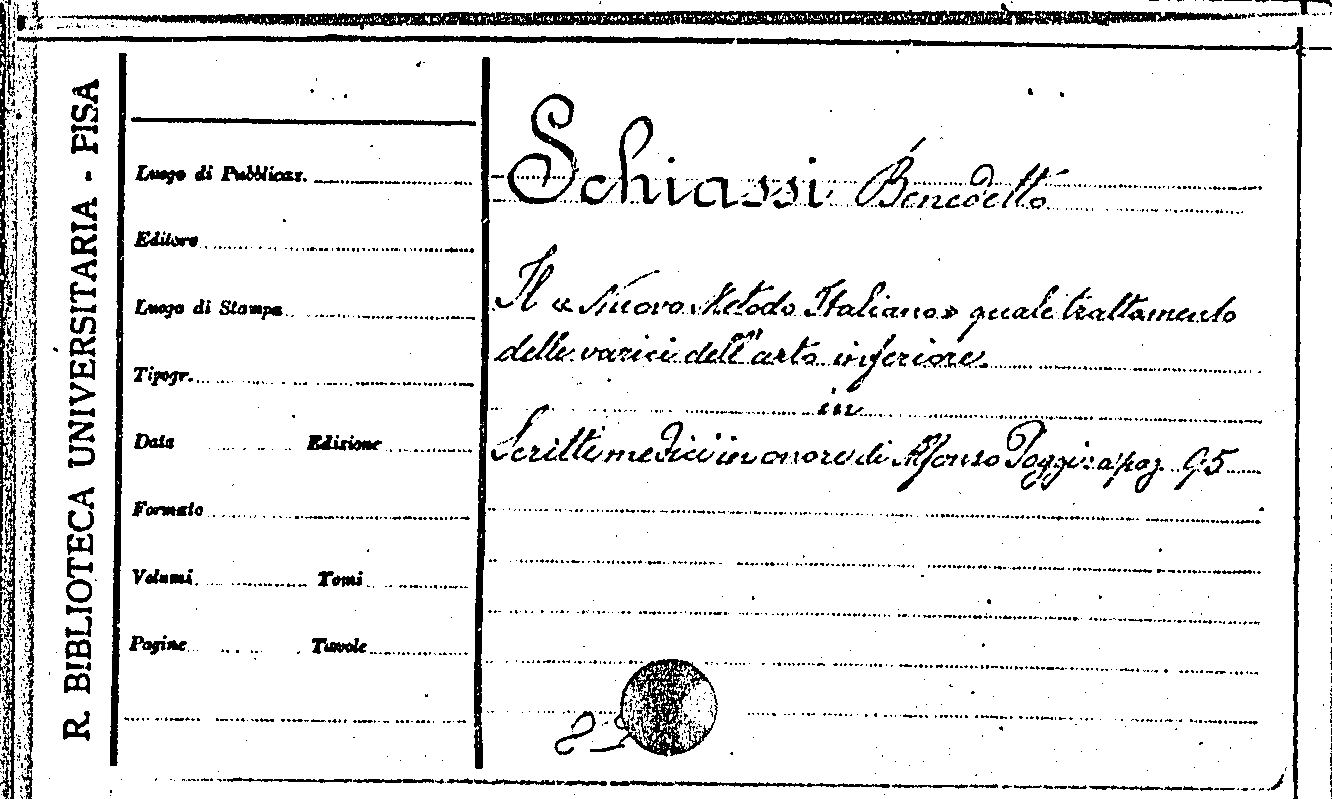 R. BIBLIOTECA UNIVERSITARIA - PISA
Luogo di Pubblicaz.
Editore
Luogo di Stampa
Tipogr.
Data Edizione
Formato
Volumi Tomi
Pagine Tavole
Schiassi Benedetto
Il « Nuovo Metodo Italiano » quale trattamento
delle varici dell'arto inferiore.
in
Scritti medici in onore di Alfonso Poggi: a pag. 95